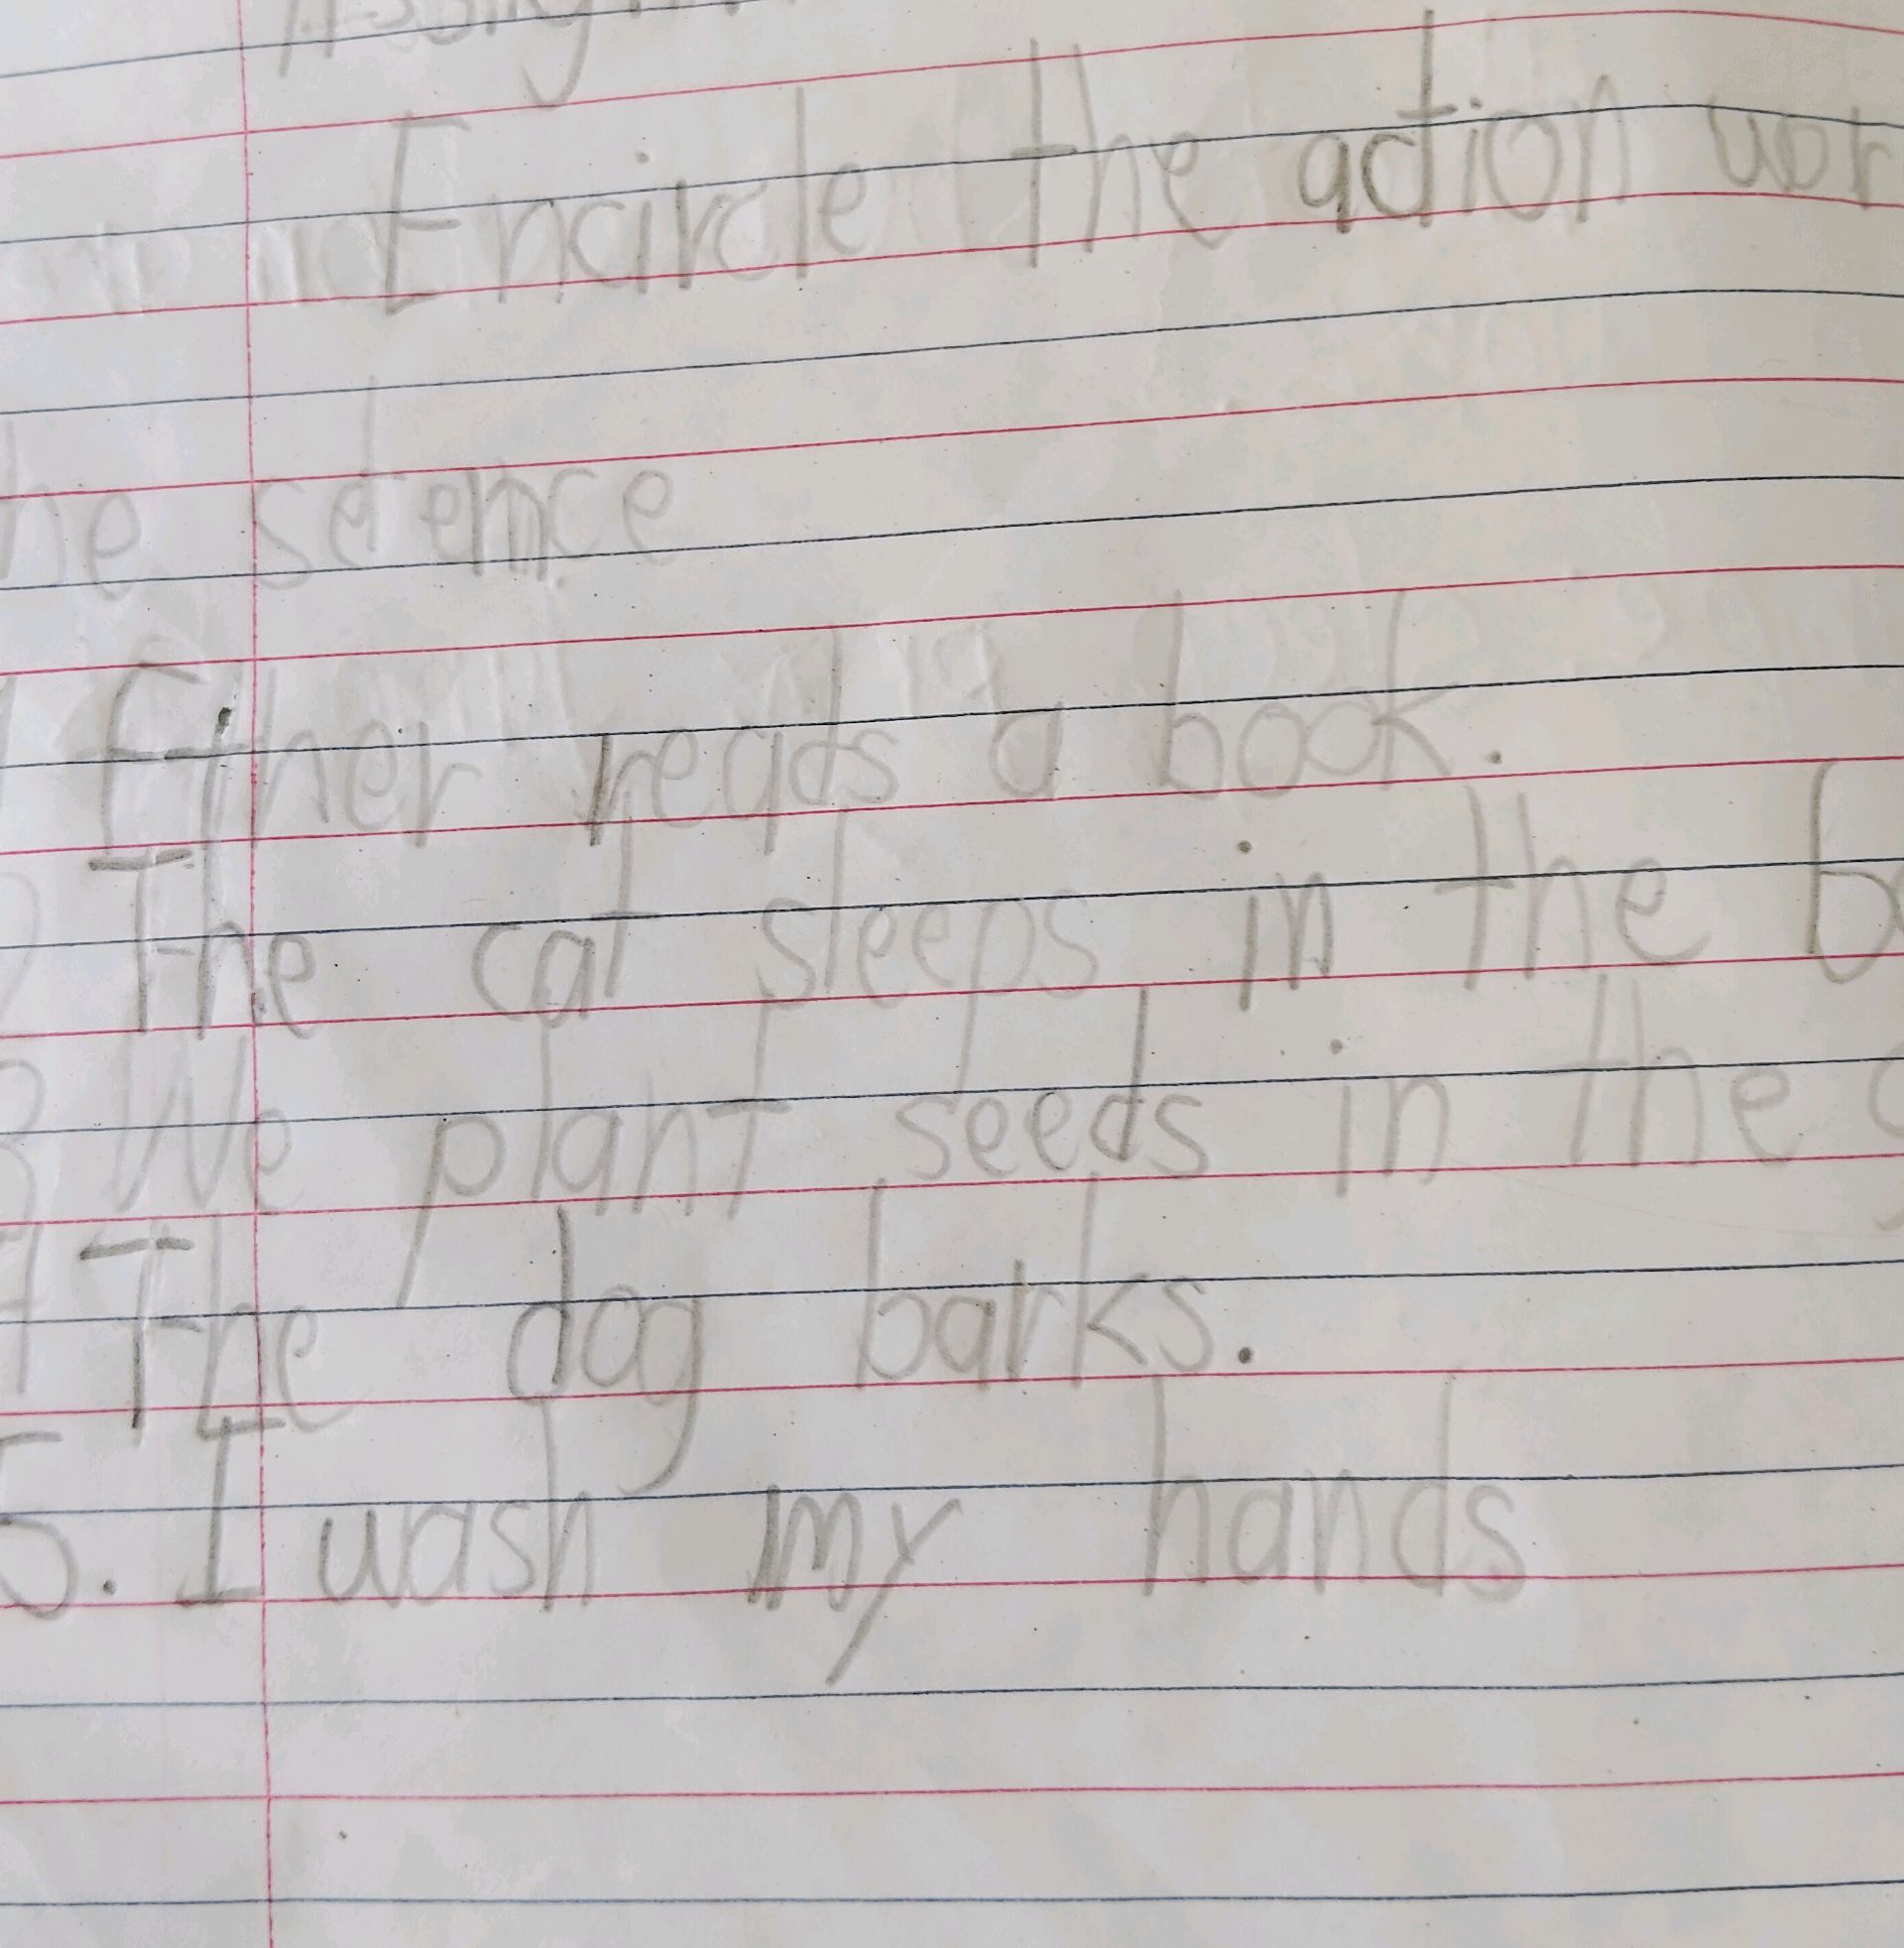 Encircle the action wor
he setence
Ether reads a book.
The cat sleeps in the b
3 We plant seeds in the g
4 The dog barks.
5. I wash my hands